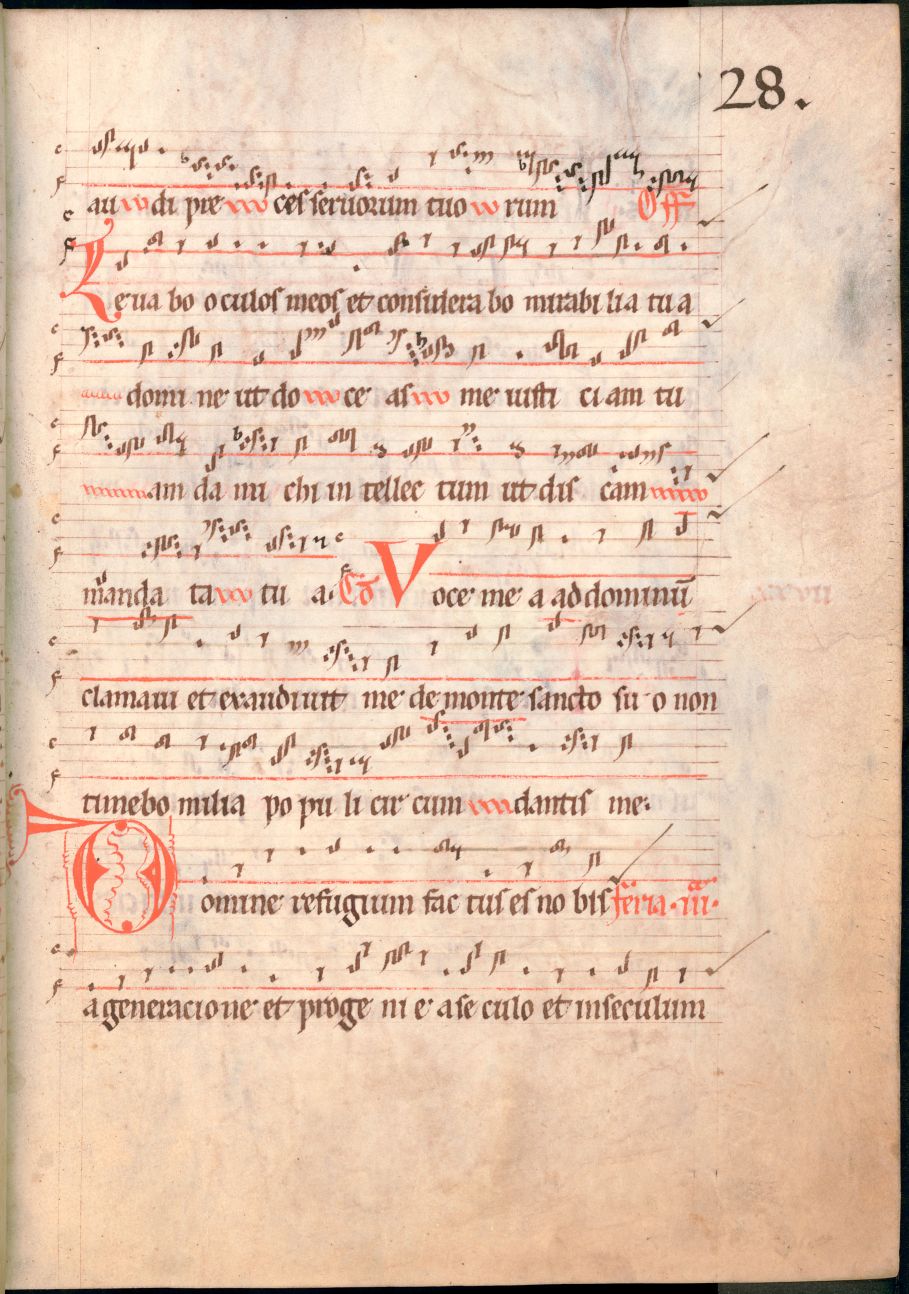 28.
au di pre ces seruorum tuo rum Off
Leua bo oculos meos et considera bo mirabi lia tua
domi ne ut do ce as me iusti ci am tu
am da mi chi in tellec tum ut dis cam
manda ta tu a. Co Voce me a ad dominū
clamaui et exaudiuit me de monte sancto su o non
timebo milia po pu li cir cum dantis me.
Domine refugium fac tus es no bis feria .iii.
a generacione et proge ni e a se culo et in seculum